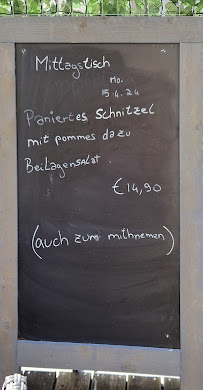 Mittagstisch
Mo.
15.4.24
Paniertes Schnitzel
mit pommes dazu
Beilagensalat.
€14,90
(auch zum mithnemen)